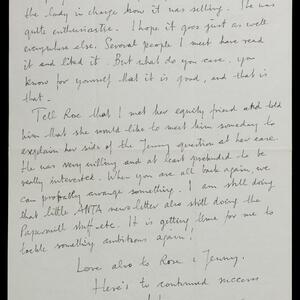 the lady in charge how it was selling. She was
quite enthusiastic. I hope it goes just as well
everywhere else. Several people I meet have read
it and liked it. But what do you care, you
know for yourself that it is good, and that is
that.
Tell Rose that I met her equity friend and told
him that she would like to meet him someday to
exsplain her side of the Jenny question at her ease.
He was very willing and at least pretended to be
really interested. When you are all back again, we
can probatly arrange something. I am still doing
that little ANTA newsletter also still doing the
Papermill stuff etc. It is getting time for me to
tackle something ambitious again!
Love also to Rose & Jenny.
Here's to continued success